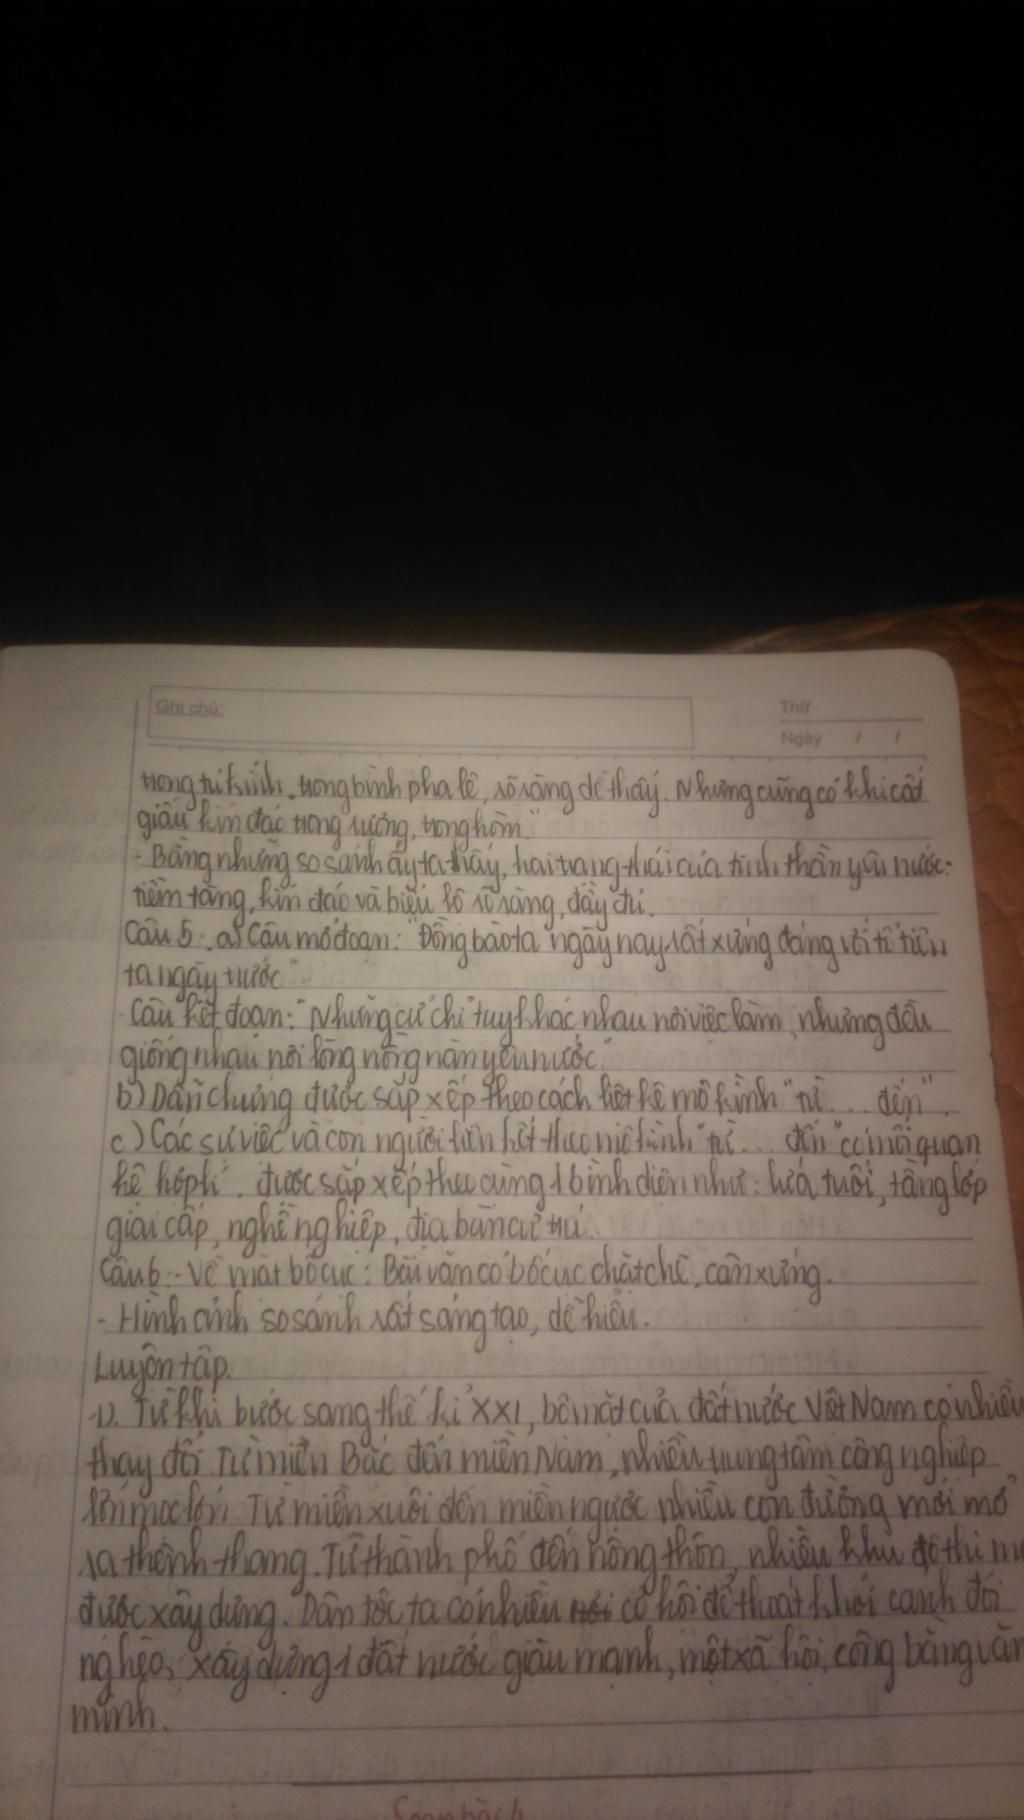 Ghi chú:
Thứ
Ngày / /
trong tủ kính, trong bình pha lê, rõ ràng dễ thấy. Nhưng cũng có khi cất
giấu kín đáo trong rương, trong hòm."
- Bằng những so sánh ấy ta thấy, hai trạng thái của tinh thần yêu nước:
tiềm tàng, kín đáo và biểu lộ rõ ràng, đầy đủ.
Câu 5: a) Câu mở đoạn: "Đồng bào ta ngày nay rất xứng đáng với tổ tiên
ta ngày trước"
- Câu kết đoạn: "Những cử chỉ tuy khác nhau nơi việc làm, nhưng đều
giống nhau nơi lòng nồng nàn yêu nước."
b) Dẫn chứng được sắp xếp theo cách liệt kê mô hình "từ ... đến".
c) Các sự việc và con người liên kết theo mô hình "từ ... đến" có mối quan
hệ hợp lí. được sắp xếp theo cùng 1 bình diện như: lứa tuổi, tầng lớp
giai cấp, nghề nghiệp, địa bàn cư trú.
Câu 6: - Về mặt bố cục: Bài văn có bố cục chặt chẽ, cân xứng.
- Hình ảnh so sánh rất sáng tạo, dễ hiểu.
Luyện tập.
1). Từ khi bước sang thế kỉ XXI, bộ mặt của đất nước Việt Nam có nhiều
thay đổi Từ miền Bắc đến miền Nam, nhiều trung tâm công nghiệp
lớn mọc lên. Từ miền xuôi đến miền ngược nhiều con đường mới mở
ra thênh thang. Từ thành phố đến nông thôn, nhiều khu đô thị
được xây dựng. Dân tộc ta có nhiều cơ hội để thoát khỏi cảnh đói
nghèo, xây dựng 1 đất nước giàu mạnh, một xã hội, công bằng văn
minh.